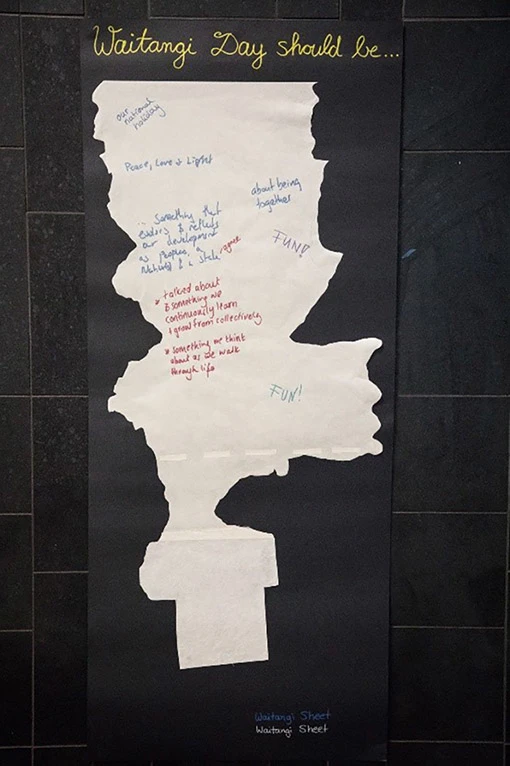 Waitangi Day should be...
our
national
holiday
Peace, Love & Light
about being
together
... Something that
evolves & reflects
our development
as peoples, a
Nationhood & a State
agree
FUN!
* talked about
& something we
continuously learn
& grow from collectively
* something we think
about as we walk
through life
FUN!
Waitangi Sheet
Waitangi Sheet